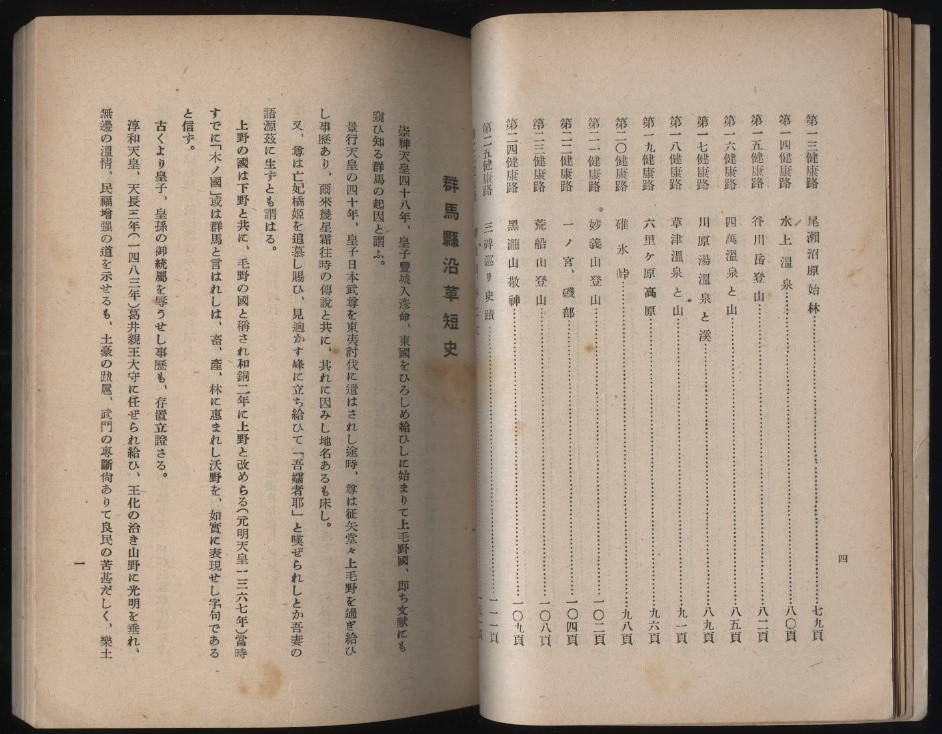 四
第一三健康路 尾瀨沼原始林 七九頁
第一四健康路 水上溫泉 八〇頁
第一五健康路 谷川岳登山 八二頁
第一六健康路 四萬溫泉と山 八五頁
第一七健康路 川原湯溫泉と溪 八九頁
第一八健康路 草津溫泉と山 九一頁
第一九健康路 六里ヶ原高原 九六頁
第二〇健康路 碓氷峠 九八頁
第二一健康路 妙義山登山 一〇二頁
第二二健康路 一ノ宮、磯部 一〇四頁
第二三健康路 荒船山登山 一〇八頁
第二四健康路 黑瀧山敬神 一〇九頁
第二五健康路 三碑巡り史蹟 一一一頁
群馬縣沿革短史
崇神天皇四十八年、皇子豐城入彥命、東國をひろしめ給ひしに始まりて上毛野國、卽ち文献にも
窺ひ知る群馬の起因と謂ふ。
景行天皇の四十年、皇子日本武尊を東夷討伐に遣はされし途時、尊は征矢堂々上毛野を過ぎ給ひ
し事歷あり、爾來幾星霜往時の傳說と共に、其れに因みし地名あるも床し。
又、尊は亡妃橘姬を追慕し賜ひ、見遁かす峰に立ち給ひて「吾嬬者耶」と嘆ぜられしとか吾妻の
語源玆に生ずとも謂はる。
上野の國は下野と共に、毛野の國と稱され和銅二年に上野と改めらる(元明天皇一三六七年)當時
すでに「木ノ國」或は群馬と言はれしは、畜、產、林に惠まれし沃野を、如實に表現せし字句である
と信ず。
古くより皇子、皇孫の御統屬を辱うせし事歷も、存置立證さる。
淳和天皇、天長三年(一四八三年)葛井親王大守に任ぜられ給ひ、王化の治き山野に光明を垂れ、
無邊の溫情、民福增强の道を示せるも、土豪の跋扈、武門の專斷尙ありて良民の苦甚だしく、樂土
一